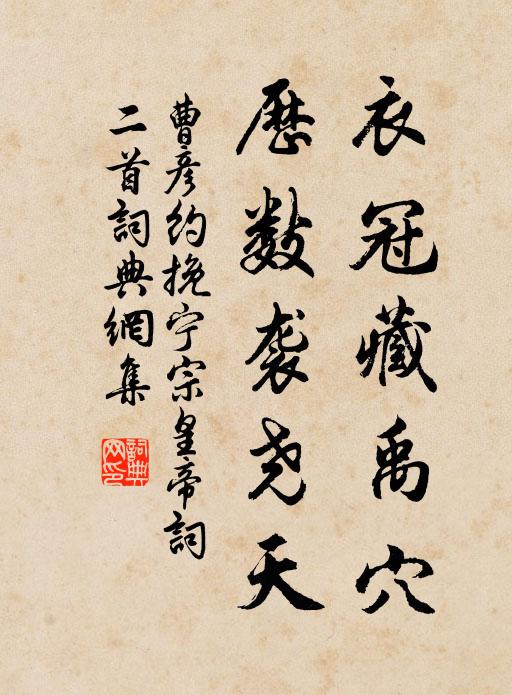 衣冠藏禹穴
历数袭尧天
曹彦约挽宁宗皇帝詞
二首詞典網集
詞典
网印